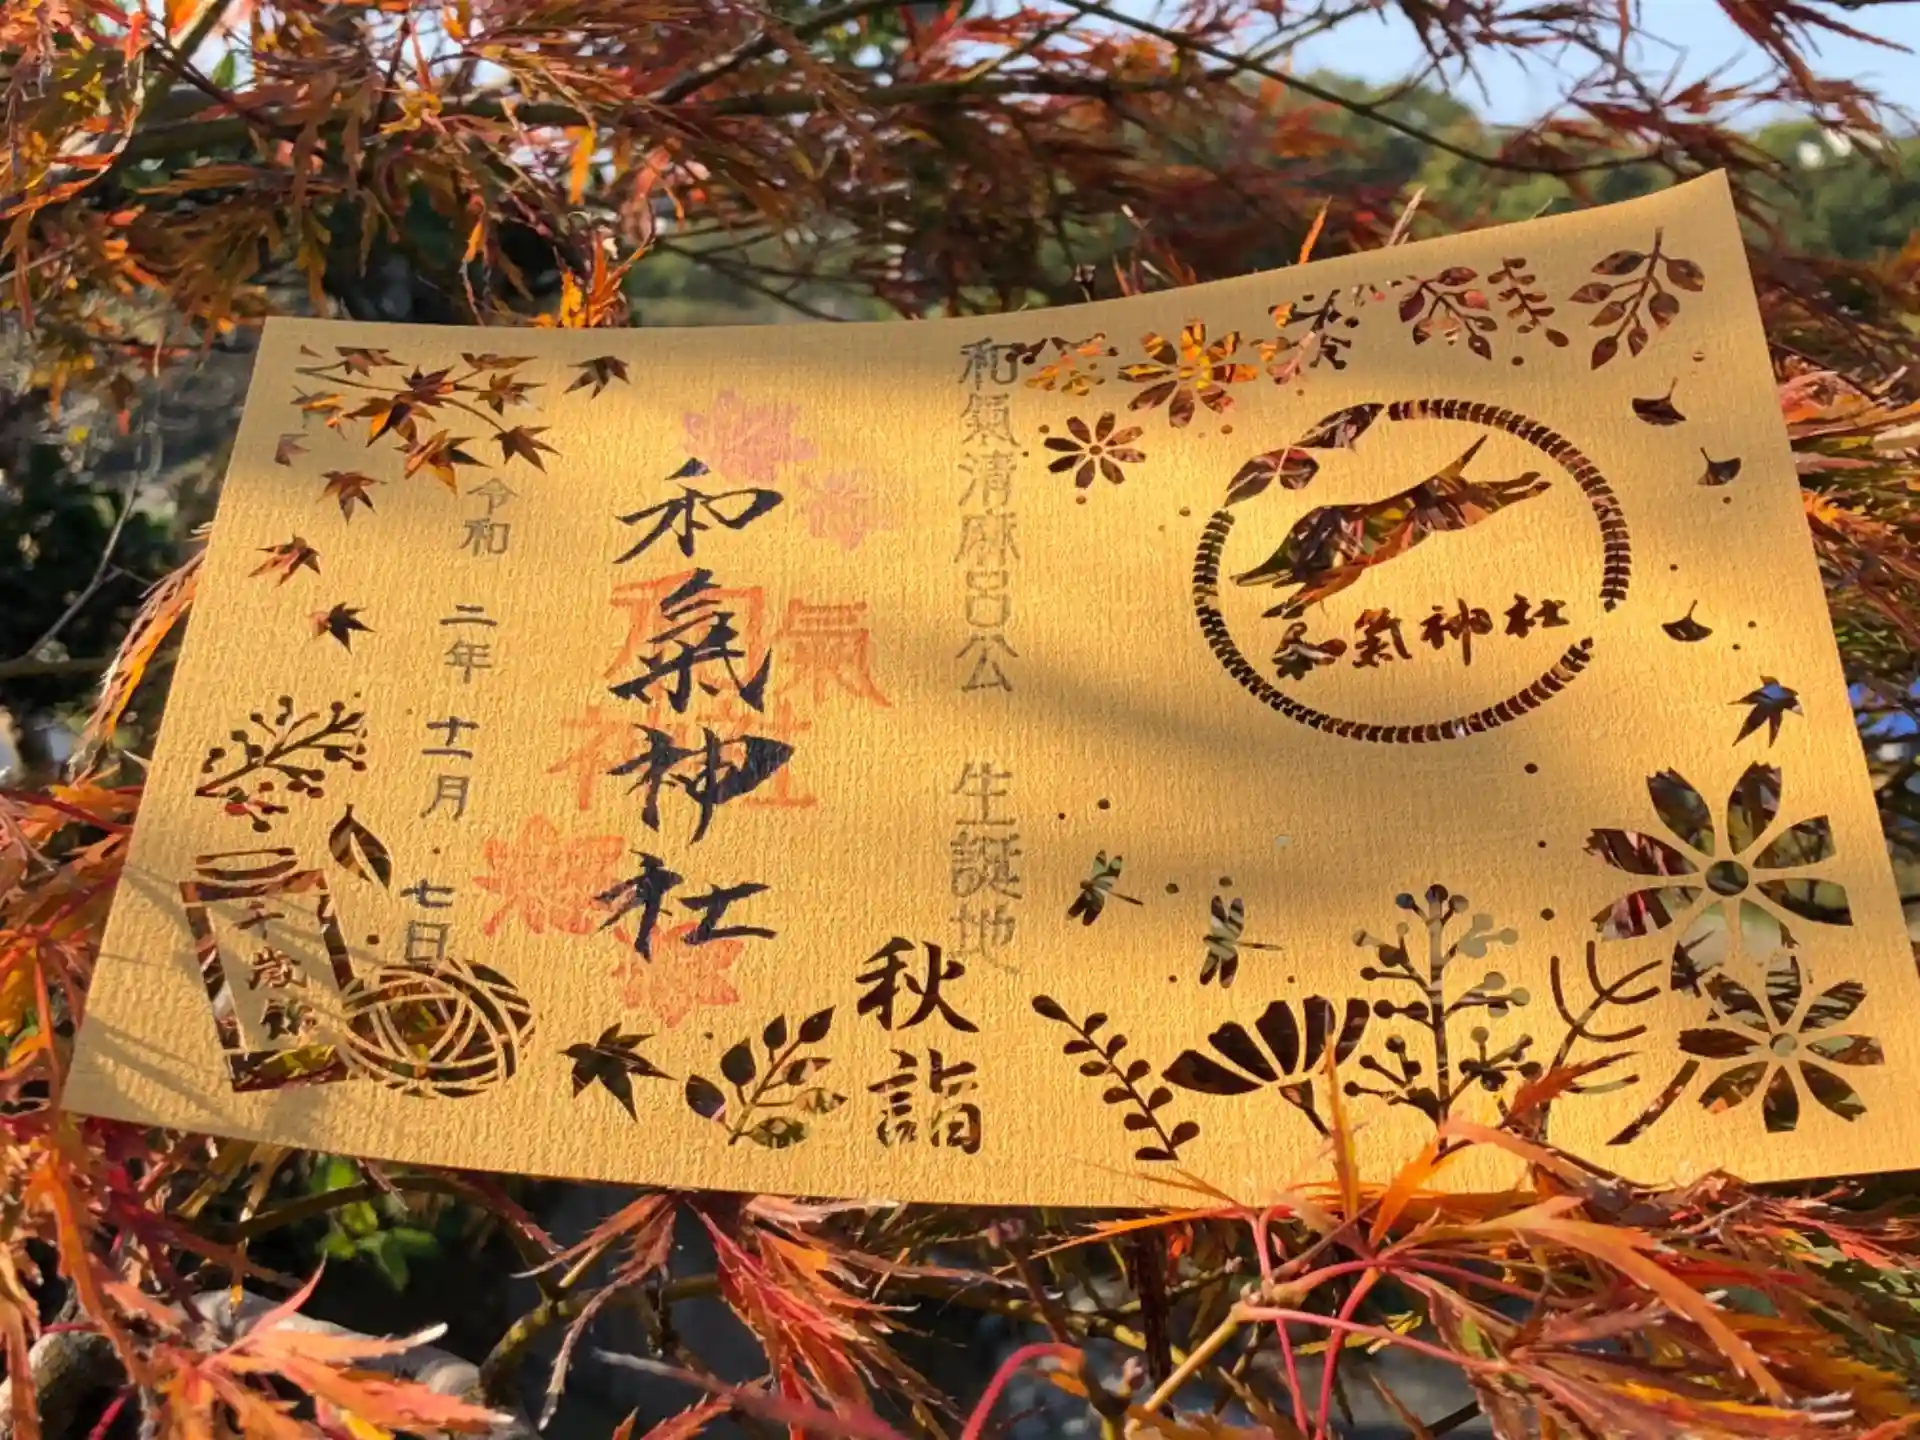 和氣神社
和氣清麻呂公 生誕地
秋詣
和氣神社
和氣
神社
令和 二年 十一月 七日
千歳飴